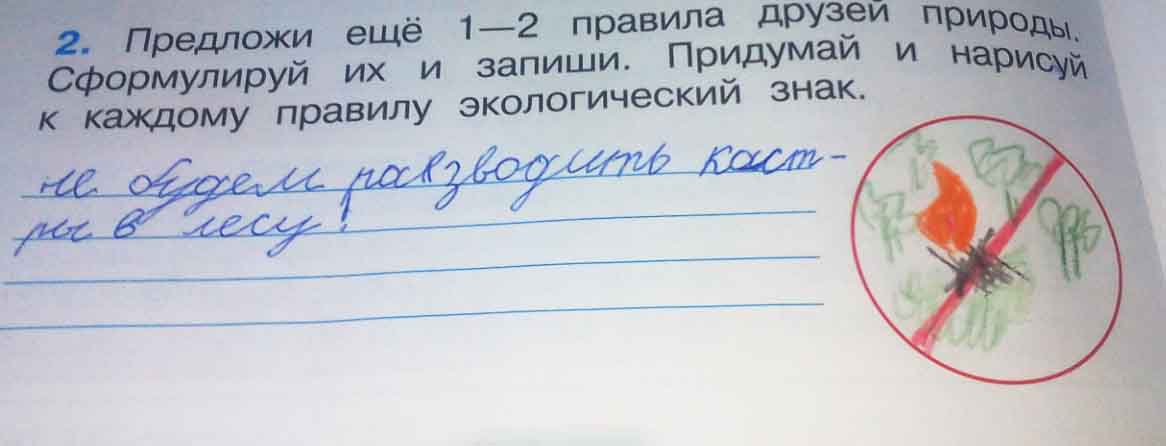 2. Предложи ещё 1—2 правила друзей природы.
Сформулируй их и запиши. Придумай и нарисуй
к каждому правилу экологический знак.
не будем разводить каст-
ры в лесу!